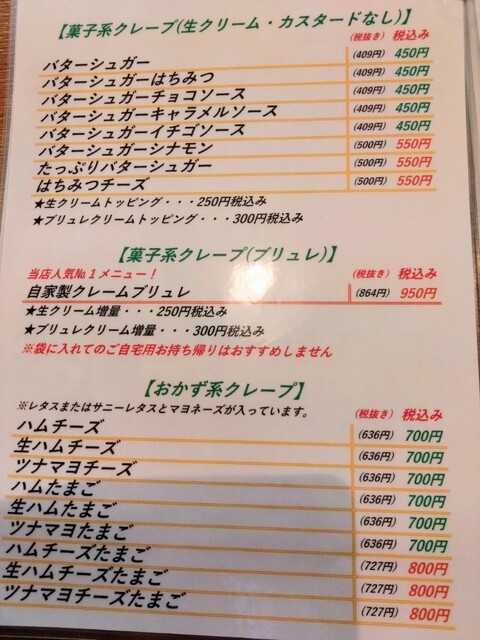 【菓子系クレープ(生クリーム・カスタードなし)】
(税抜き) 税込み
バターシュガー (409円) 450円
バターシュガーはちみつ (409円) 450円
バターシュガーチョコソース (409円) 450円
バターシュガーキャラメルソース (409円) 450円
バターシュガーイチゴソース (409円) 450円
バターシュガーシナモン (500円) 550円
たっぷりバターシュガー (500円) 550円
はちみつチーズ (500円) 550円
★生クリームトッピング・・・250円税込み
★ブリュレクリームトッピング・・・300円税込み
【菓子系クレープ(ブリュレ)】
当店人気№1メニュー! (税抜き) 税込み
自家製クレームブリュレ (864円) 950円
★生クリーム増量・・・250円税込み
★ブリュレクリーム増量・・・300円税込み
※袋に入れてのご自宅用お持ち帰りはおすすめしません
【おかず系クレープ】
※レタスまたはサニーレタスとマヨネーズが入っています。 (税抜き) 税込み
ハムチーズ (636円) 700円
生ハムチーズ (636円) 700円
ツナマヨチーズ (636円) 700円
ハムたまご (636円) 700円
生ハムたまご (636円) 700円
ツナマヨたまご (636円) 700円
ハムチーズたまご (727円) 800円
生ハムチーズたまご (727円) 800円
ツナマヨチーズたまご (727円) 800円